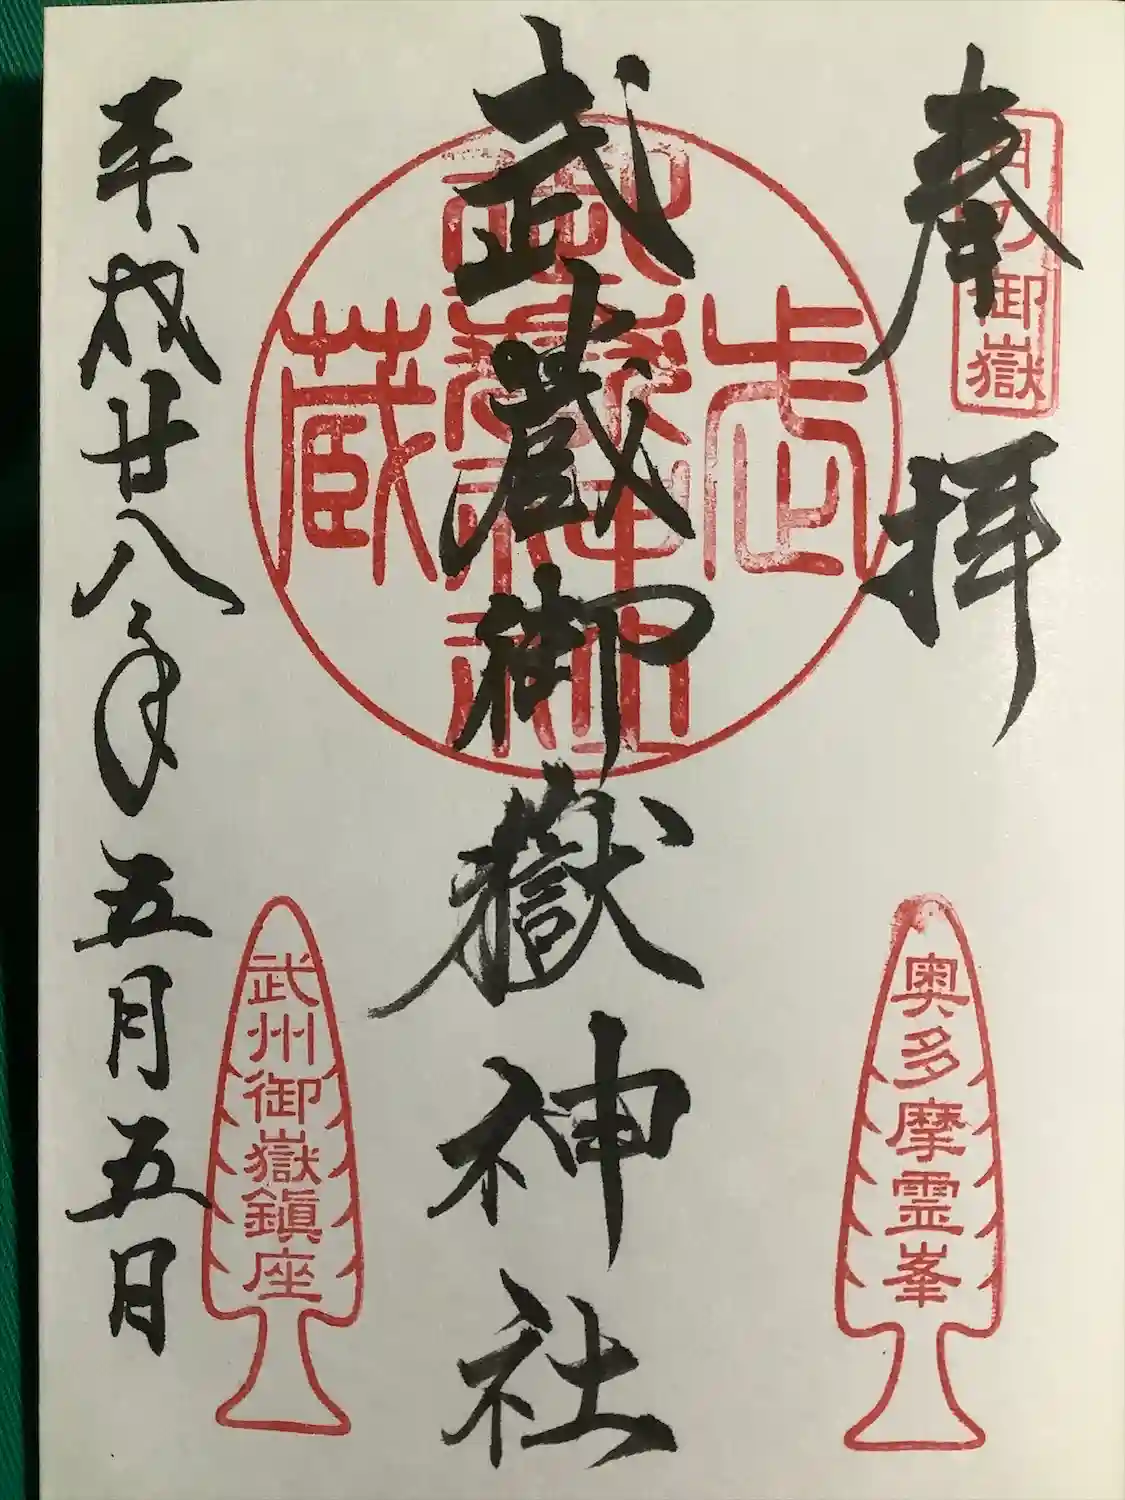 奉拝
御嶽
武蔵御嶽神社
武蔵
奥多摩霊峯
平成廿八年五月五日
武州御嶽鎮座